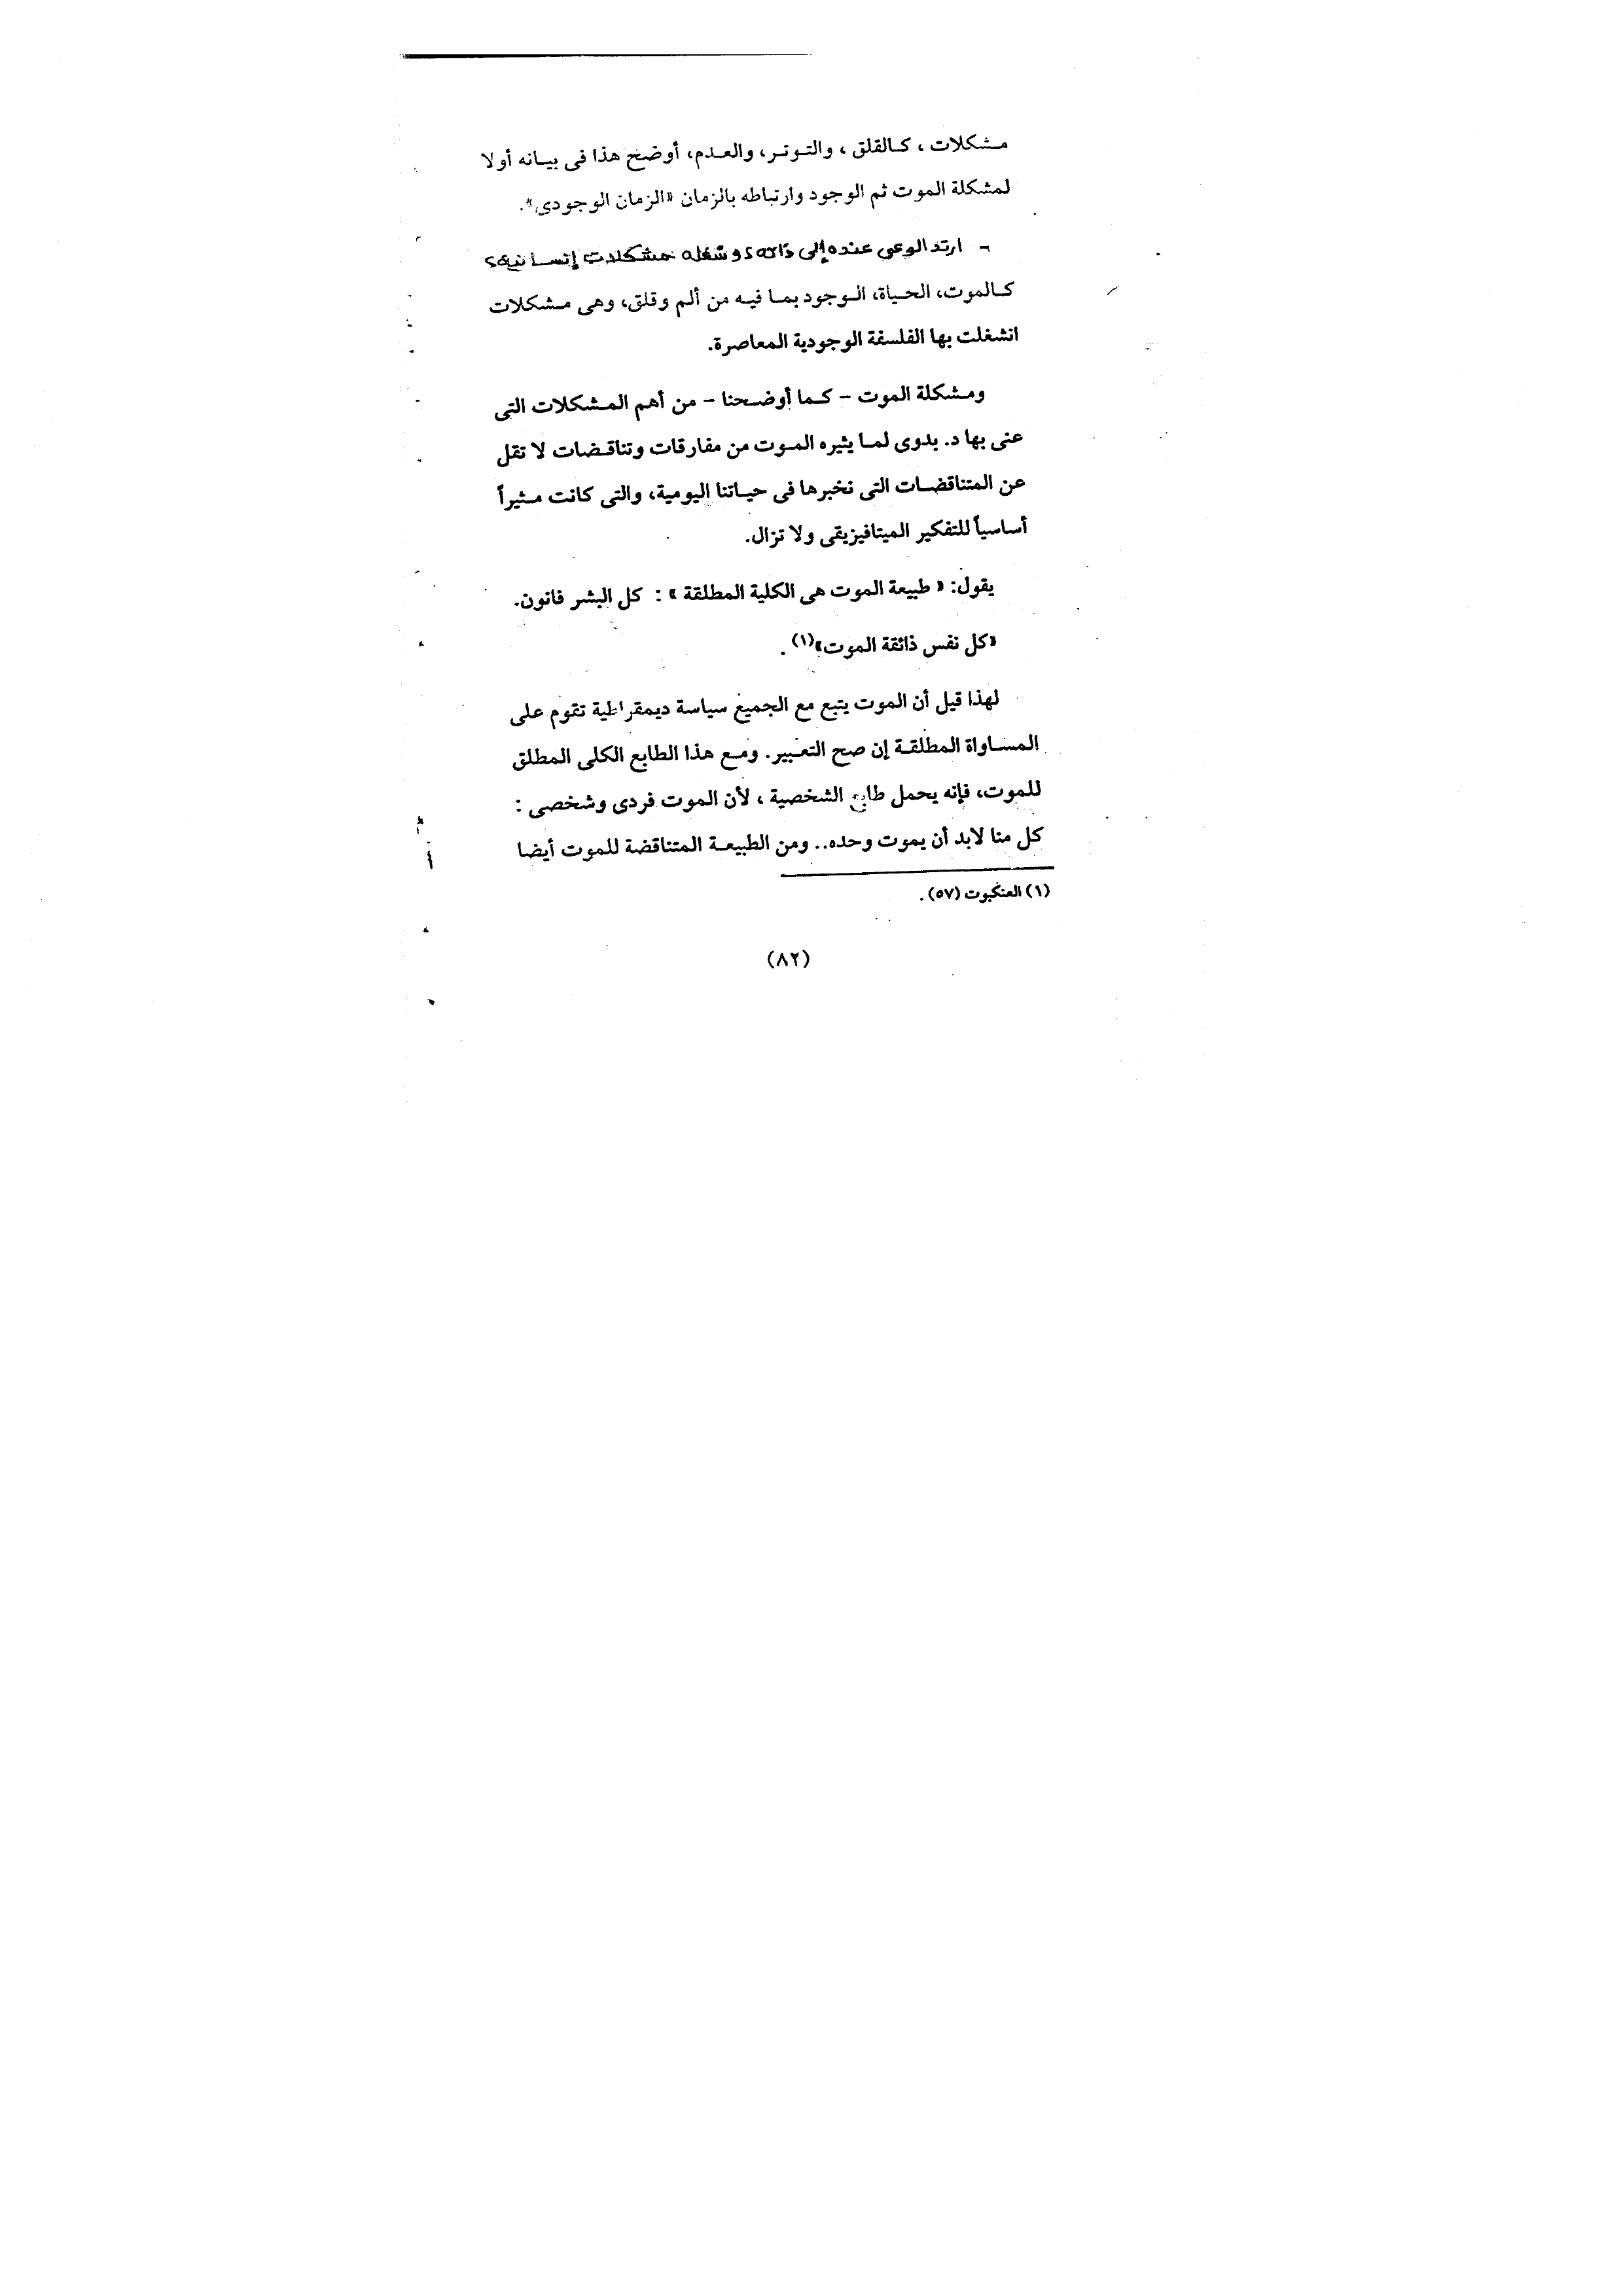 مشكلات ، كالقلق ، والتوتر، والعدم، أوضح هذا فى بيانه أولا
لمشكلة الموت ثم الوجود وارتباطه بالزمان «الزمان الوجودى».
- ارتد الوعى عنده إلى ذاته، وشغله مشكلات إنسانية،
كالموت، الحياة، الوجود بما فيه من ألم وقلق، وهى مشكلات
انشغلت بها الفلسفة الوجودية المعاصرة.
ومشكلة الموت - كما أوضحنا - من أهم المشكلات التى
عنى بها د. بدوى لما يثيره الموت من مفارقات وتناقضات لا تقل
عن المتناقضات التى نخبرها فى حياتنا اليومية، والتى كانت مثيراً
أساسياً للتفكير الميتافيزيقى ولا تزال.
يقول: « طبيعة الموت هى الكلية المطلقة » : كل البشر فانون.
«كل نفس ذائقة الموت»(١) .
لهذا قيل أن الموت يتبع مع الجميع سياسة ديمقراطية تقوم على
المساواة المطلقة إن صح التعبير. ومع هذا الطابع الكلى المطلق
للموت، فإنه يحمل طابع الشخصية ، لأن الموت فردى وشخصى :
كل منا لابد أن يموت وحده.. ومن الطبيعة المتناقضة للموت أيضا
(١) العنكبوت (٥٧) .
(٨٢)